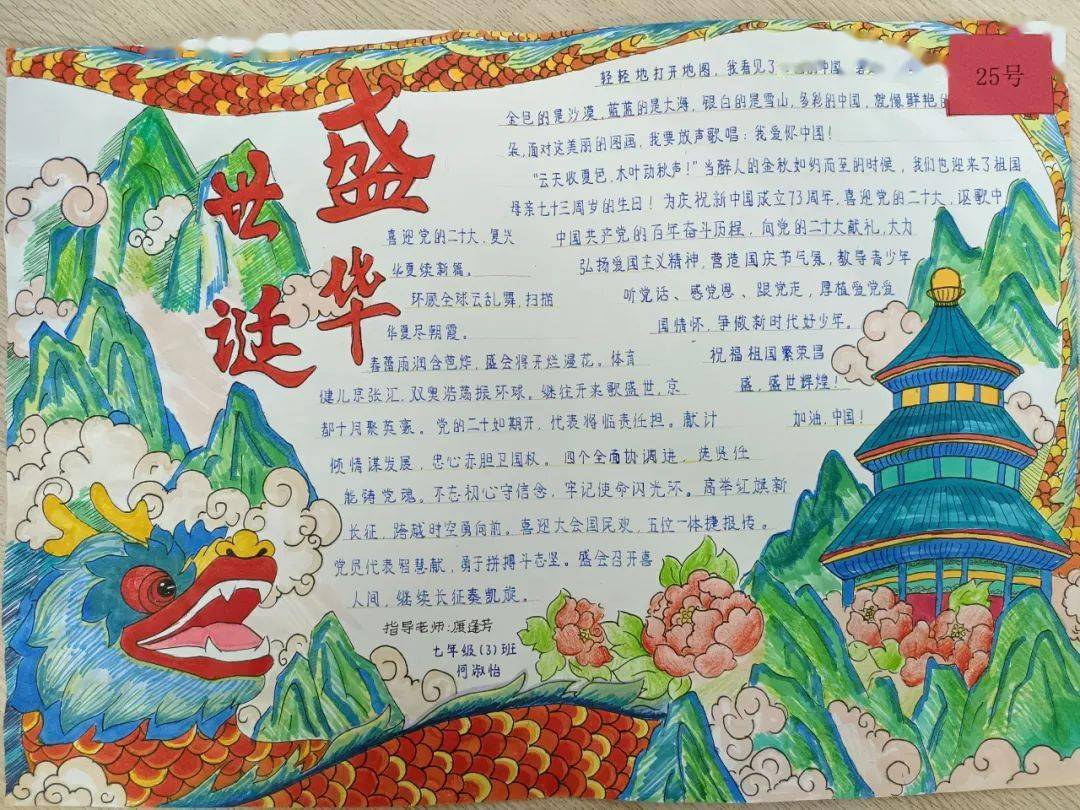 盛世
华诞
25号
轻轻地打开地图，我看见了
金色的是沙漠，蓝蓝的是大海，银白的是雪山，多彩的中国，就像鲜艳的
朵，面对这美丽的图画，我要放声歌唱：我爱你中国！
“云天收夏色，木叶动秋声！”当醉人的金秋如约而至的时候，我们也迎来了祖国
母亲七十三周岁的生日！为庆祝新中国成立73周年，喜迎党的二十大，讴歌中
中国共产党的百年奋斗历程，向党的二十大献礼，大力
弘扬爱国主义精神，营造国庆节气氛，教导青少年
听党话、感党恩、跟党走，厚植爱党爱
国情怀，争做新时代好少年。
祝福祖国繁荣昌
盛，盛世辉煌！
加油，中国！
喜迎党的二十大，复兴
华夏续新篇。
环顾全球云乱舞，扫描
华夏尽朝霞。
春蕾雨润含苞烨，盛会将开烂漫花。体育
健儿京张汇，双奥浩荡振环球。继往开来歌盛世，京
都十月聚英豪。党的二十如期开，代表将临责任担。献计
倾情谋发展，忠心赤胆卫国权。四个全面协调进，选贤任
能铸党魂。不忘初心守信念，牢记使命闪光环。高举红旗新
长征，跨越时空勇向前。喜迎大会国民欢，五位一体捷报传。
党员代表智慧献，勇于拼搏斗志坚。盛会召开喜
人间，继续长征奏凯旋。
指导老师：逢芳
七年级（3）班
何淑怡